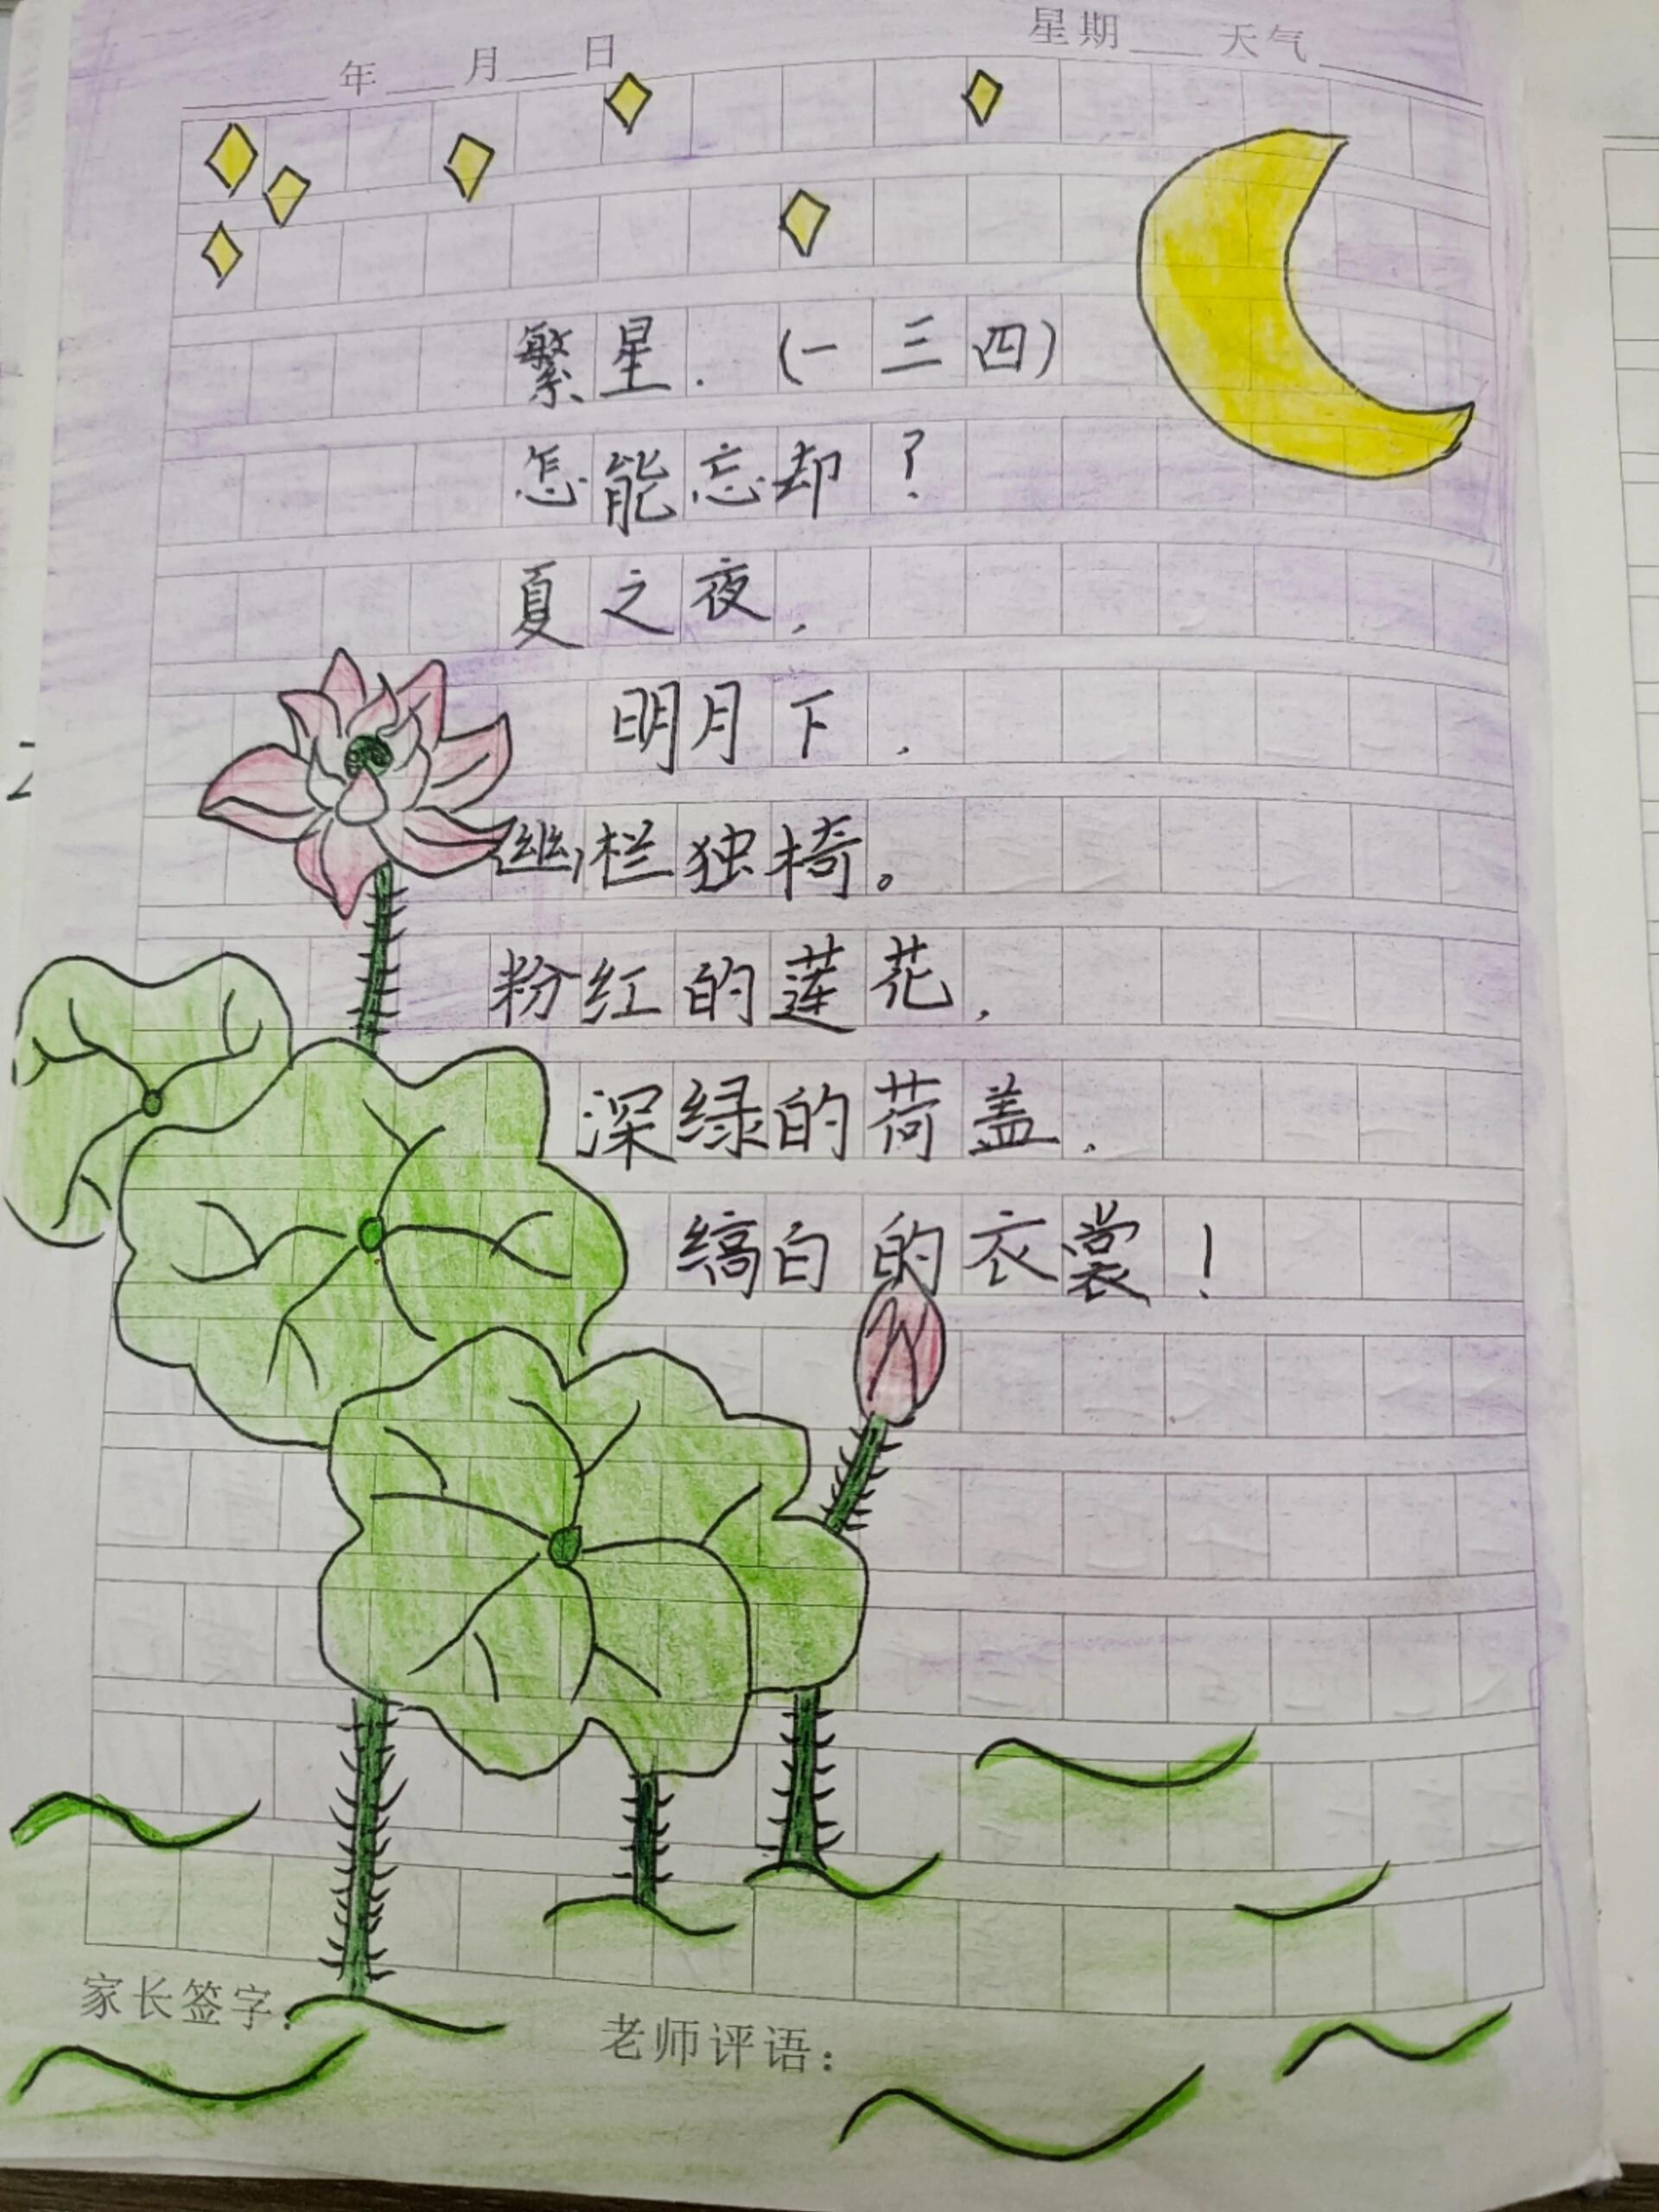 年 月 日 星期 天气
繁星.(一三四)
怎能忘却?
夏之夜,
明月下,
幽栏独椅。
粉红的莲花,
深绿的荷盖,
缟白的衣裳!
家长签字:
老师评语: